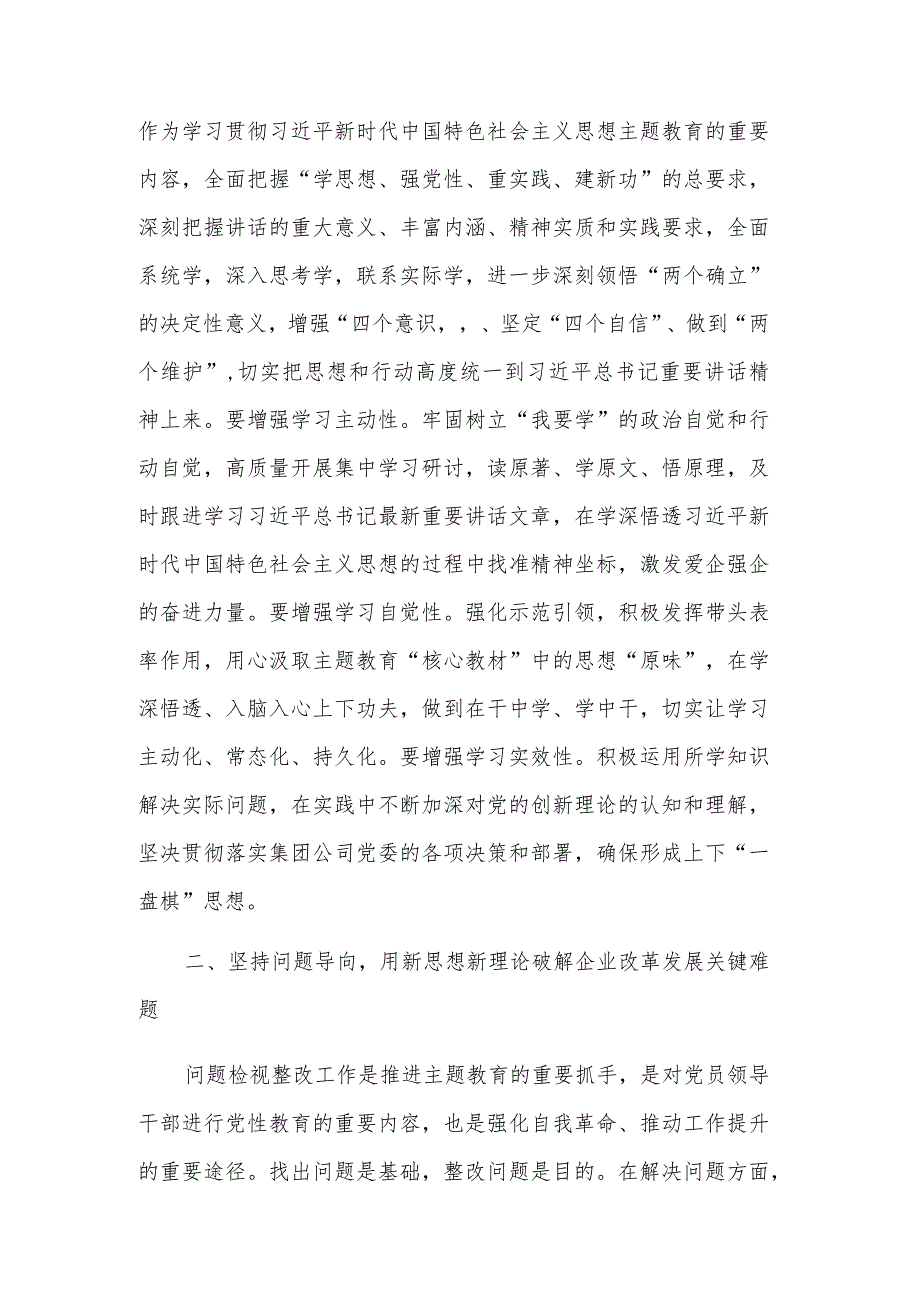 作为学习贯彻习近平新时代中国特色社会主义思想主题教育的重要
内容，全面把握“学思想、强党性、重实践、建新功”的总要求，
深刻把握讲话的重大意义、丰富内涵、精神实质和实践要求，全面
系统学，深入思考学，联系实际学，进一步深刻领悟“两个确立”
的决定性意义，增强“四个意识，，、坚定“四个自信”、做到“两
个维护”,切实把思想和行动高度统一到习近平总书记重要讲话精
神上来。要增强学习主动性。牢固树立“我要学”的政治自觉和行
动自觉，高质量开展集中学习研讨，读原著、学原文、悟原理，及
时跟进学习习近平总书记最新重要讲话文章，在学深悟透习近平新
时代中国特色社会主义思想的过程中找准精神坐标，激发爱企强企
的奋进力量。要增强学习自觉性。强化示范引领，积极发挥带头表
率作用，用心汲取主题教育“核心教材”中的思想“原味”，在学
深悟透、入脑入心上下功夫，做到在干中学、学中干，切实让学习
主动化、常态化、持久化。要增强学习实效性。积极运用所学知识
解决实际问题，在实践中不断加深对党的创新理论的认知和理解，
坚决贯彻落实集团公司党委的各项决策和部署，确保形成上下“一
盘棋”思想。
二、坚持问题导向，用新思想新理论破解企业改革发展关键难
题
问题检视整改工作是推进主题教育的重要抓手，是对党员领导
干部进行党性教育的重要内容，也是强化自我革命、推动工作提升
的重要途径。找出问题是基础，整改问题是目的。在解决问题方面，